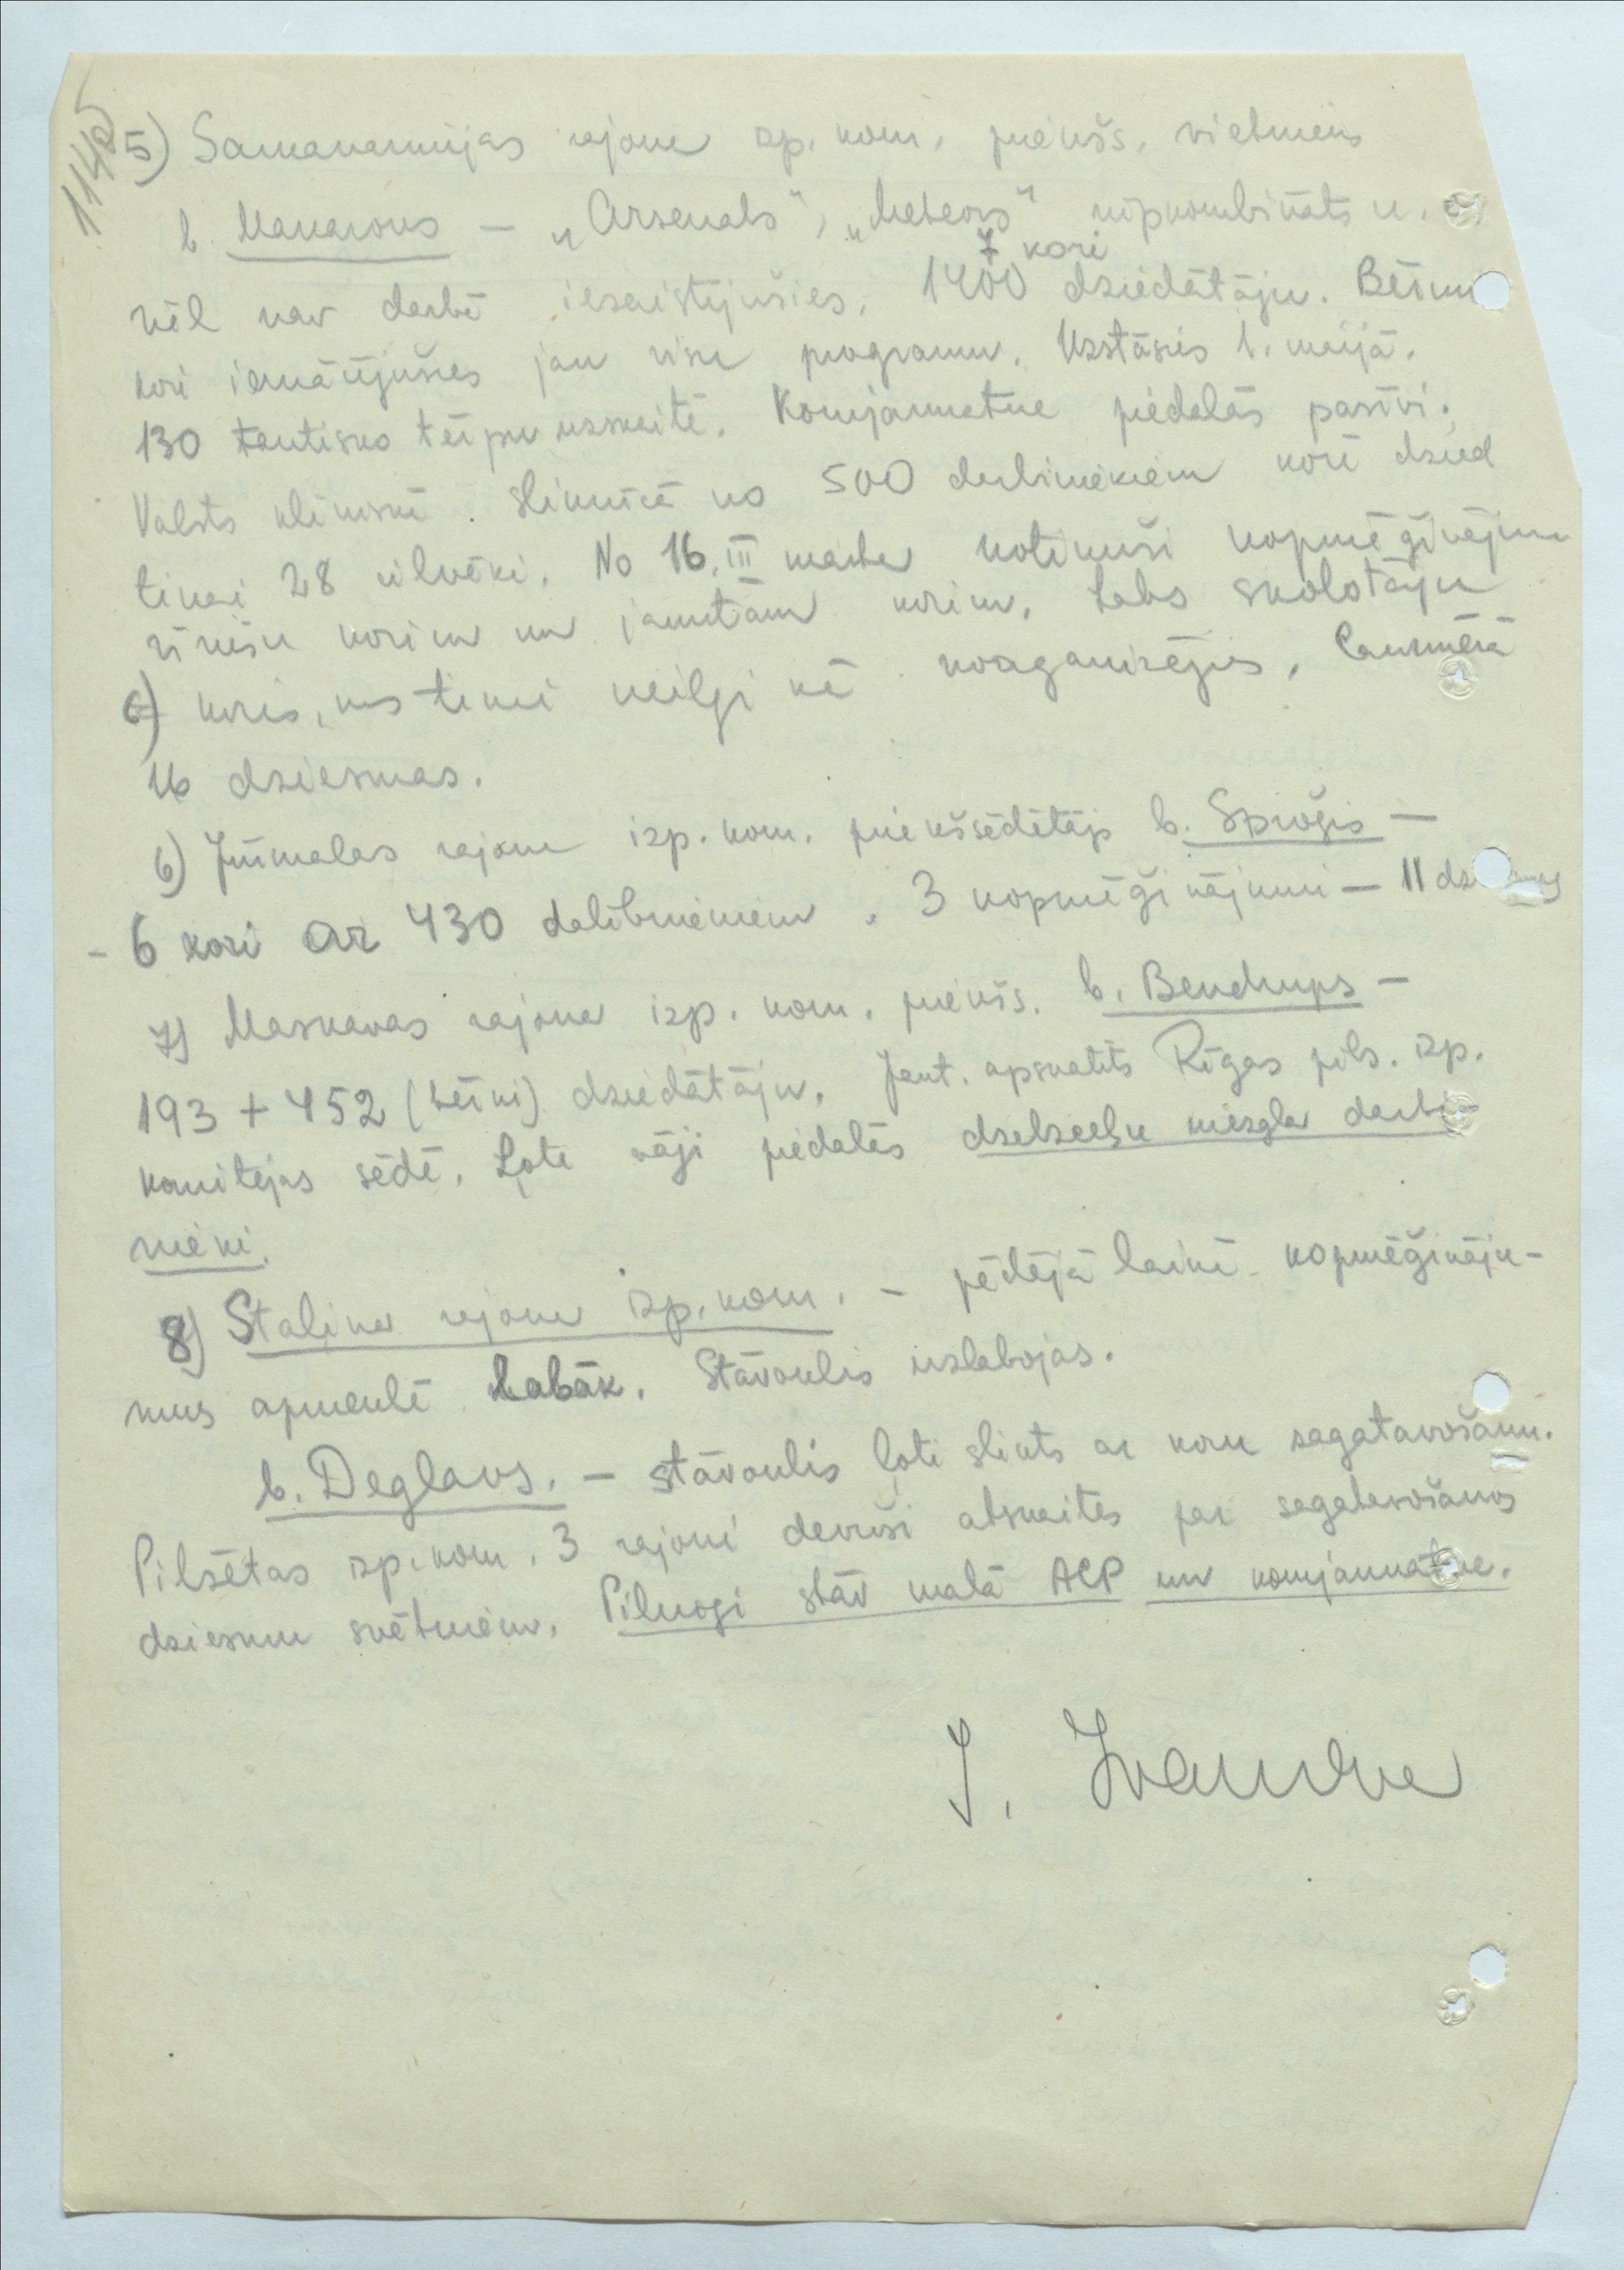 1145
5) Sarkanarmijas rajona izp. kom. priekšs. vietnieks
b. Makarovs — „Arsenals", „Meteors" rūpkombināts u.
7 kori
vēl nav darbā iesaistījušies. 1400 dziedātāju. Bērnu
kori iemācījušies jau visu programu. Uzstāsies 1. maijā.
130 tautisko tērpu uzskaitē. Komjaunatne piedalās pasīvi.
Valsts klīniskā slimnīcā no 500 darbiniekiem korī dzied
tikai 28 cilvēki. No 16. III marta notikuši kopmēģinājumi
vīriešu koriem un jauktam korim. Labs skolotāju
6) koris, kas tikai neilgi kā noorganizējies. Caurmērā
16 dziesmas.
6) Jūrmalas rajona izp. kom. priekšsēdētājs b. Sproģis —
- 6 kori ar 430 dalībniekiem. 3 kopmēģinājumi — 11
7) Maskavas rajona izp. kom. priekšs. b. Bendrups —
193 + 452 (bērni) dziedātāju. Jaut. apskatīts Rīgas pils. izp.
komitejas sēdē. Ļoti vāji piedalās dzelzceļu mezgla darbi-
nieki.
8) Staļina rajona izp. kom. — pēdējā laikā kopmēģināju-
mus apmeklē labāk. Stāvoklis uzlabojas.
b. Deglavs. — stāvoklis ļoti slikts ar koru sagatavošanu.
Pilsētas izp. kom. 3 rajoni devuši atskaites par sagatavošanos
dziesmu svētkiem. Pilnīgi stāv malā ACP un komjaunatne.
J.